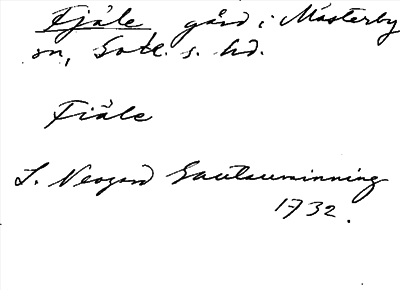 Fjäle gård i Mästerby
sn, Gotl. s. hd.
Fiäle
L. Neogard Gautauminning
1732.